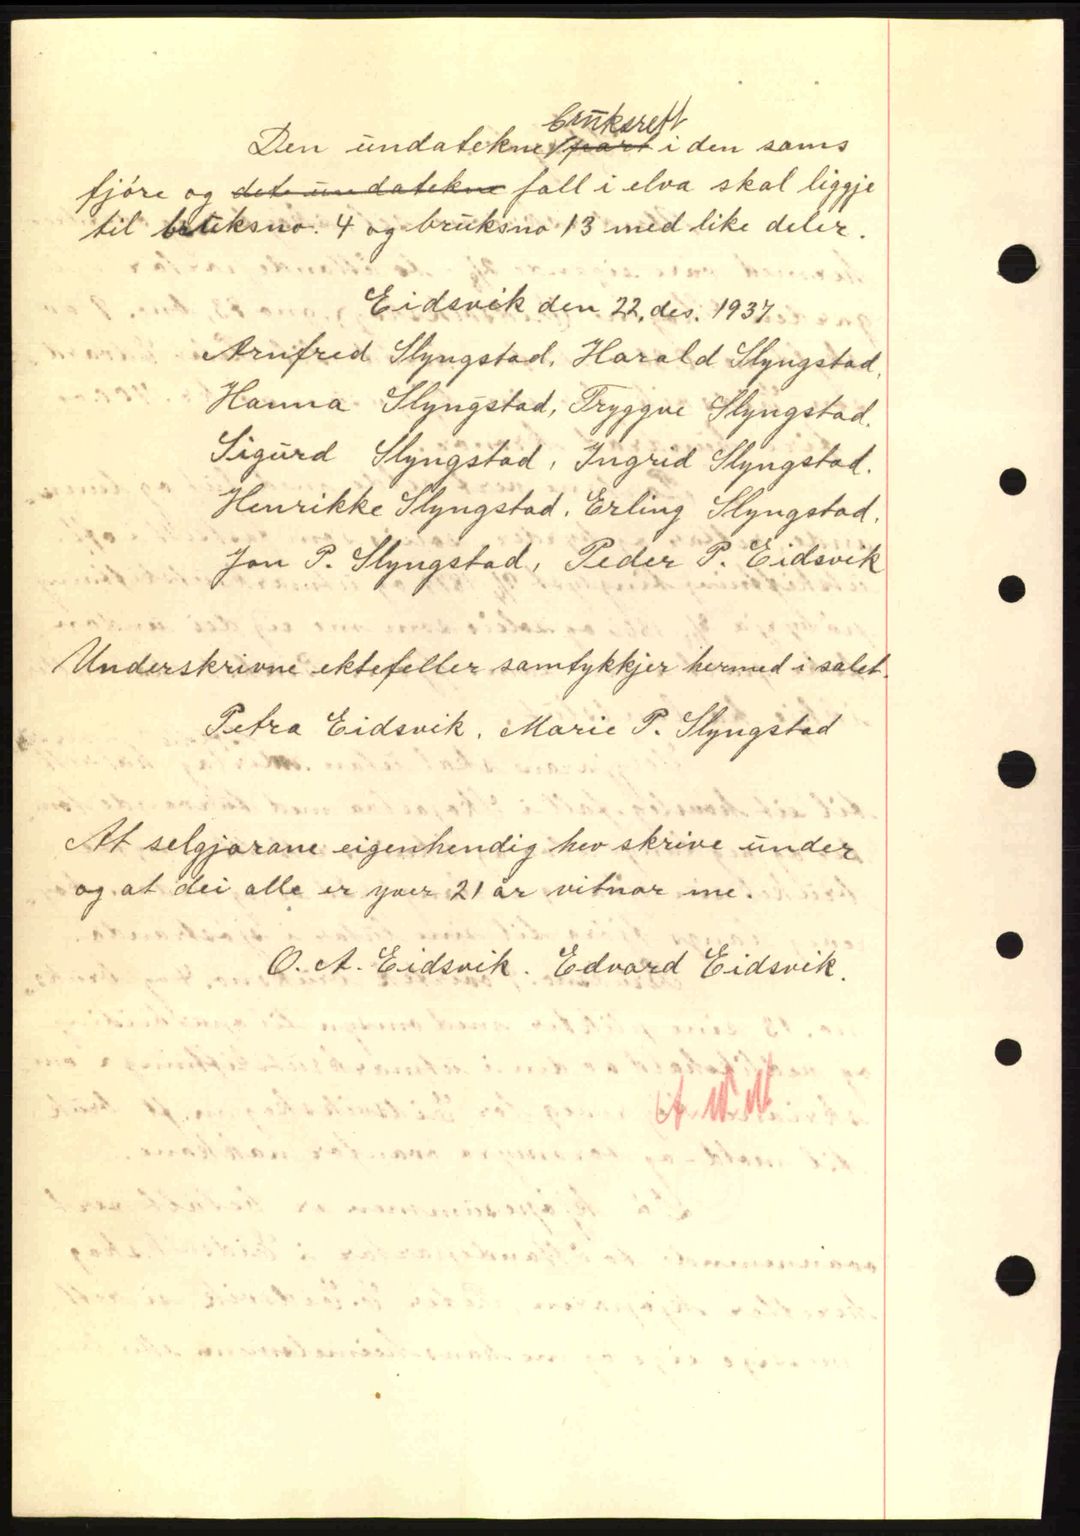 Den undatekne bruksrett ~~part~~ i den sams
fjöre og ~~det undatekne~~ fall i elva skal liggje
til bruksno. 4 og bruksno 13 med like deler.
Eidsvik den 22. des. 1937
Arnfred Slyngstad, Harald Slyngstad,
Hanna Slyngstad, Tryggve Slyngstad.
Sigurd Slyngstad, Ingrid Slyngstad.
Henrikke Slyngstad. Erling Slyngstad.
Jon P. Slyngstad, Peder P. Eidsvik
Underskrivne ektefeller samtykkjer hermed i salet.
Petra Eidsvik. Marie P. Slyngstad
At selgjarane eigenhendig hev skrive under
og at dei alle er yver 21 år vitnar me.
O. A. Eidsvik. Edvard Eidsvik.